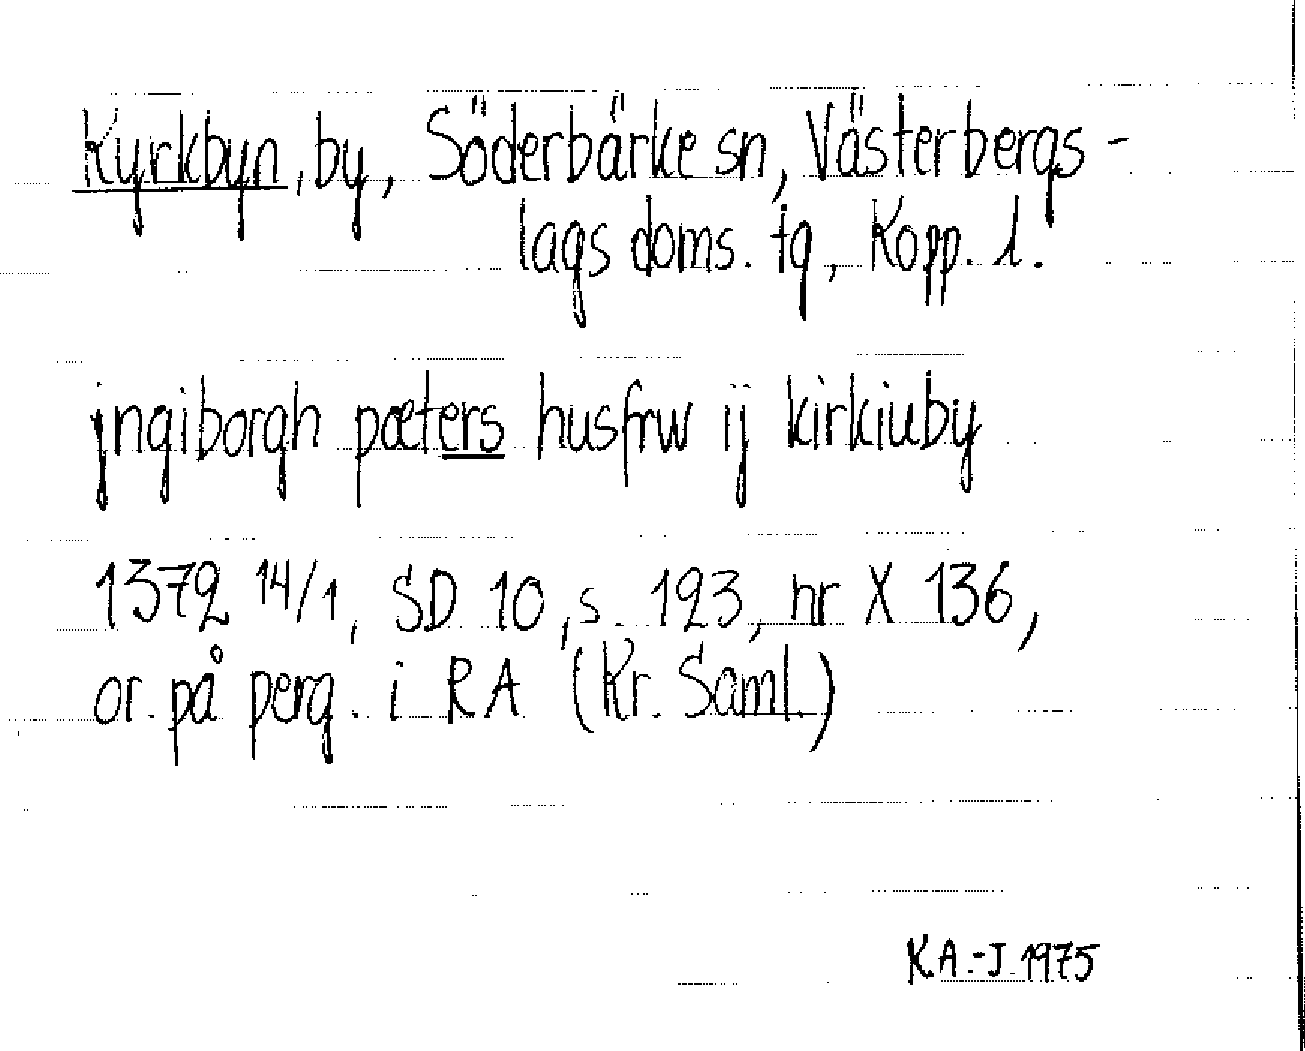 Kyrkbyn, by, Söderbärke sn, Västerbergs-
lags doms. tg, Kopp. l.
jngiborgh pæters husfrw ij kirkiuby
1372 14/1, SD 10, s. 123, nr X 136,
or. på perg. i RA (Kr. Saml.)
K.A.-J. 1975